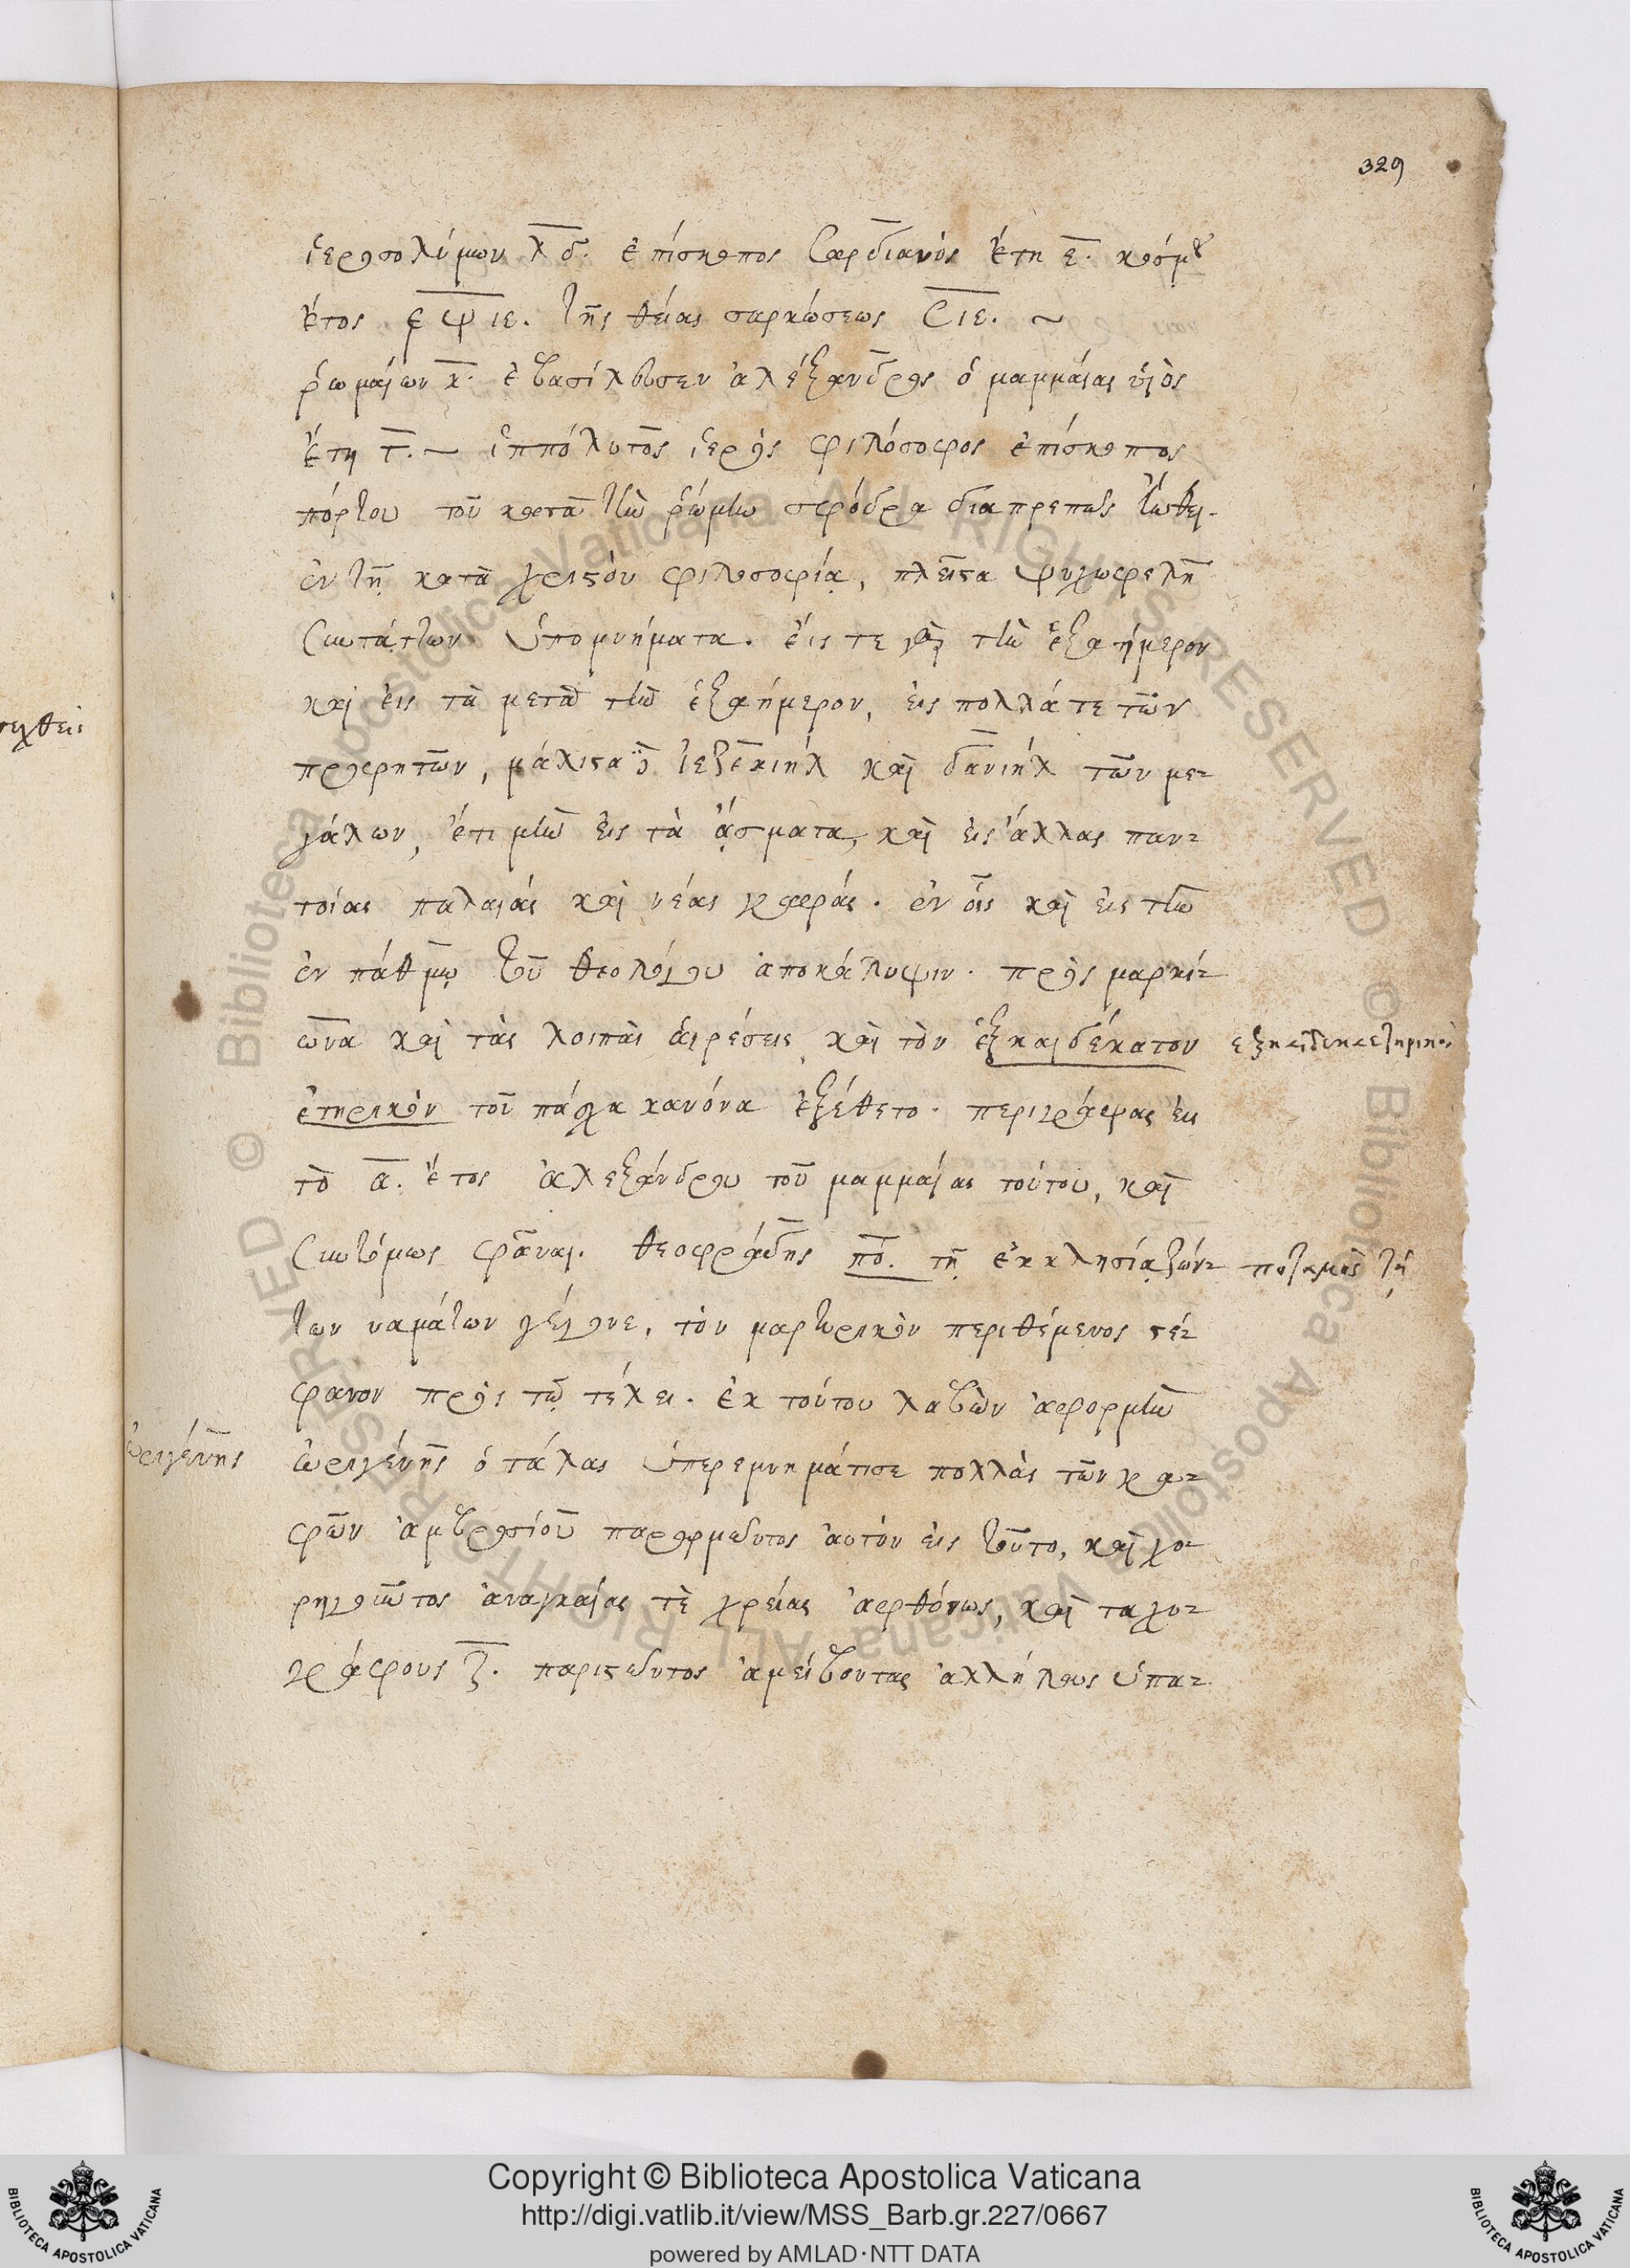 329
ἱεροσολύμων λδ. ἐπίσκοπος Σαρδιανός ἔτη ε. κόσμου
ἔτος εψιε. τῆς θείας σαρκώσεως σιε. ~
ῥωμαίων κ. ἐβασίλευσεν ἀλέξανδρος ὁ μαμμαίας υἱὸς
ἔτη ι. ~ ἱππόλυτος ἱερὸς φιλόσοφος ἐπίσκοπος
πόρτου τοῦ κατὰ τὴν ῥώμην σφόδρα διαπρεπῶς ἤνθει.
ἐν τῇ κατὰ χριστὸν φιλοσοφίᾳ, πλεῖστα ψυχωφελῆ
συντάττων ὑπομνήματα. εἴς τε γὰρ τὴν ἑξαήμερον
καὶ εἰς τὰ μετὰ τὴν ἑξαήμερον, εἰς πολλά τε τῶν
προφητῶν, μάλιστα ἰεζεκιὴλ καὶ δανιὴλ τῶν με-
γάλων, ἔτι μὴν εἰς τὰ ᾄσματα, καὶ εἰς ἄλλας παν-
τοίας παλαιάς καὶ νέας γραφάς. ἐν οἷς καὶ εἰς τὴν
ἐν πάθμῳ τοῦ θεολόγου ἀποκάλυψιν. πρὸς μαρκί-
ωνα καὶ τὰς λοιπὰς αἱρέσεις, καὶ τὸν ἑξκαιδέκατον
ἑξκαιδεκαετηρικὸν
ἐτηρικὸν τοῦ πάσχα κανόνα ἐξέθετο. περιγράψας εἰς
τὸ α. ἔτος ἀλεξάνδρου τοῦ μαμμαίας τούτου, καὶ
συντόμως φᾶναι. θεοφράδης πο. τῇ ἐκκλησίᾳ ζών-
ποταμὸς τῇ
των ναμάτων γέγονε, τὸν μαρτυρικὸν περιθέμενος στέ-
φανον πρὸς τῷ τέλει. ἐκ τούτου λαβὼν ἀφορμὴν
ὠριγένης
ὠριγένης ὁ τάλας ὑπερεμνημάτισε πολλὰς τῶν γρα-
φῶν ἀμβροσίου παρορμῶντος αὐτὸν εἰς τοῦτο, καὶ χο-
ρηγοῦντος ἀναγκαίας τὲ χρείας ἀφθόνως, καὶ ταχυ-
γράφους ζ. παριστῶντος ἀμείβοντας ἀλλήλους ὑπα-
Copyright © Biblioteca Apostolica Vaticana
http://digi.vatlib.it/view/MSS_Barb.gr.227/0667
powered by AMLAD·NTT DATA
BIBLIOTECA APOSTOLICA VATICANA
BIBLIOTECA APOSTOLICA VATICANA
© Biblioteca Apostolica Vaticana ALL RIGHTS RESERVED © Biblioteca Apostolica Vaticana ALL RIGHTS RESERVED